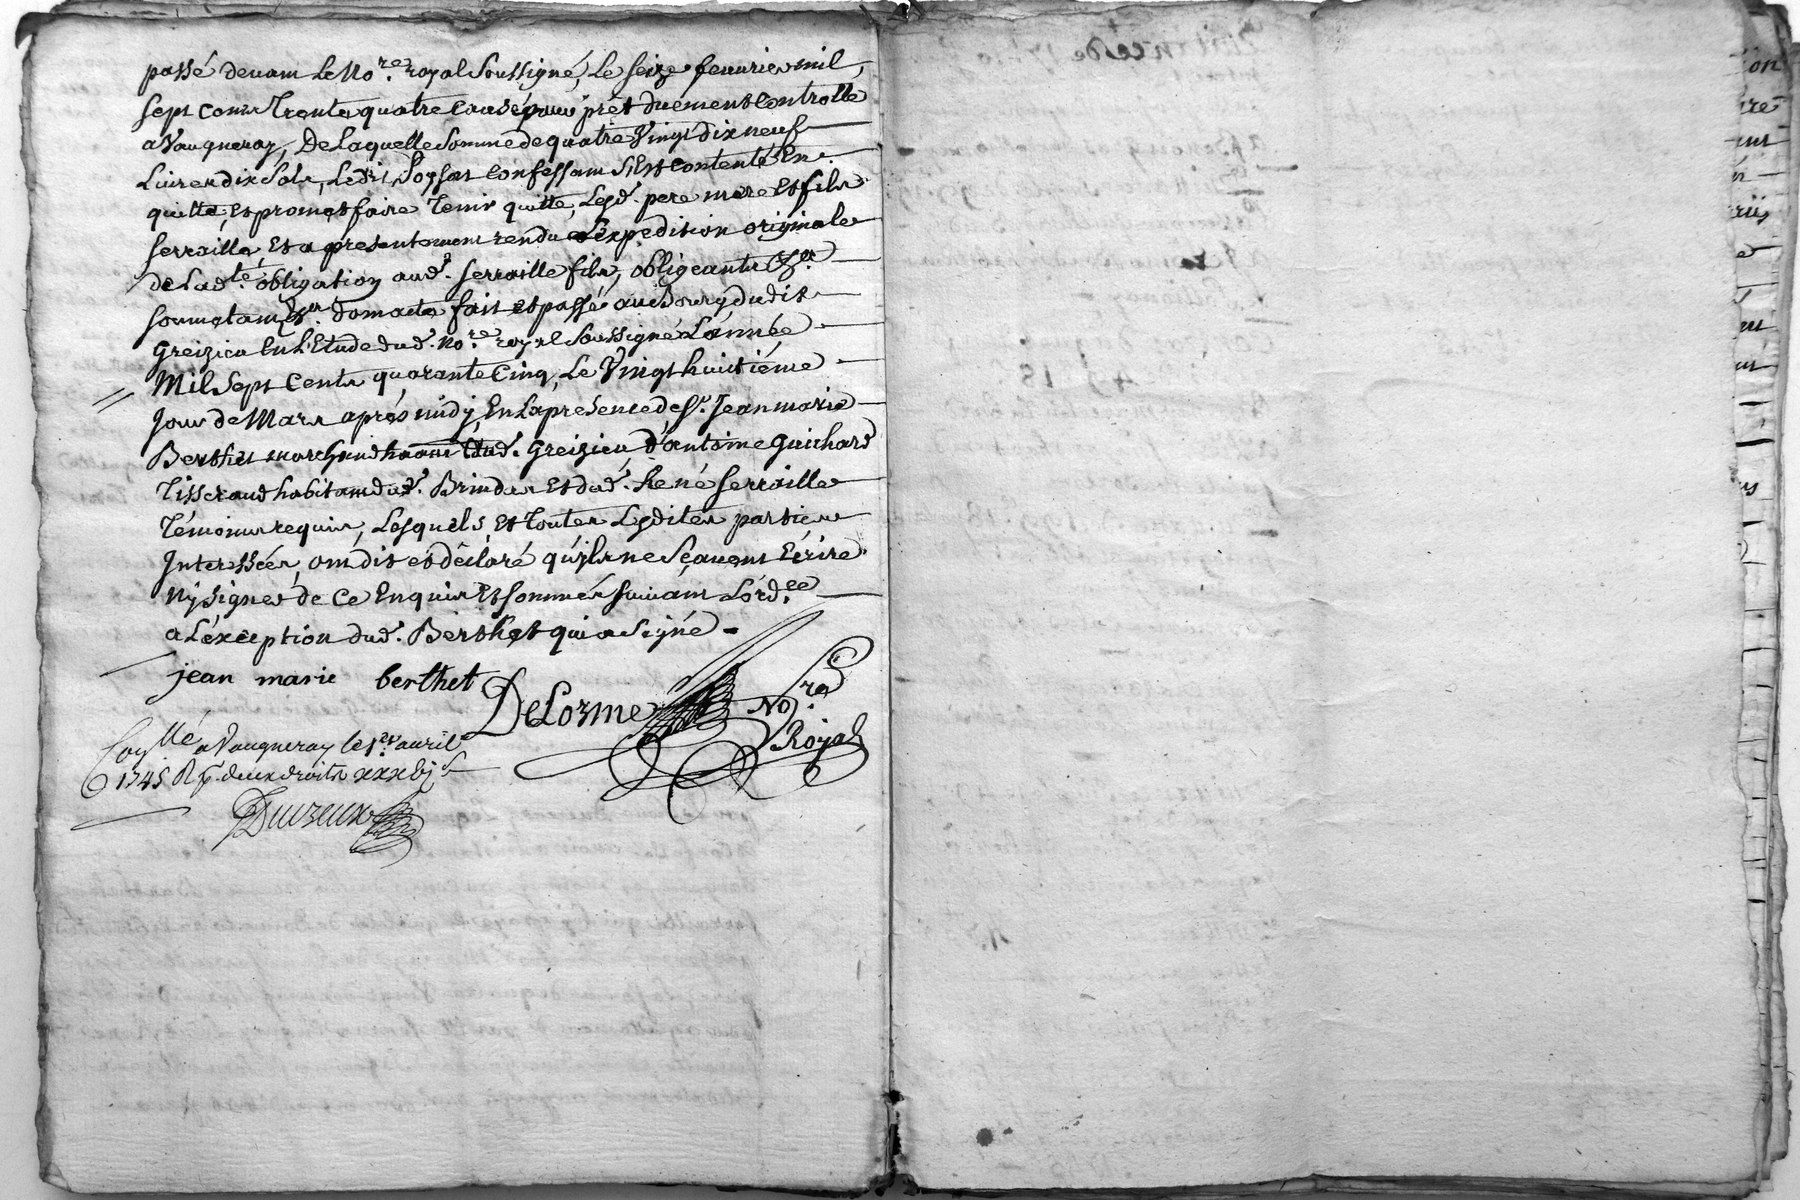 passé devant le no.re royal soussigné, le seize fevrier mil
sept cents trente quatre causé pour prêt duement controllé
a Vaugneray, De laquelle somme de quatre vingt dix neuf
Livres dix sols, Ledit confessant s'est contenté En
quitte, et promet faire tenir quitte, Lesd. pere mere et fils
serraille, Et a presentement rendu L'expedition originale
de Lad.te obligation aud. serraille fils, obligeants &a
soumetants &a. Dont acte fait et passé au Bourg dudit
Greizieu En L'Etude dud. no.re royal soussigné L'année
Mil sept Cents quarante Cinq, Le Vingt huitiéme
Jour de Mars aprés midy, En La presence de sr. Jean marie
Berthet marchand Greizieu, d'antoine Guichard
Tisserand habitant dud. Brindas Et dud. René serraille
Témoins requis, Lesquels et toutes Lesdites parties
Interessées, ont dit et déclaré qu'ils ne sçavent Ecrire
Ny signer de ce Enquis Et sommés suivant L'ord.ce
a L'éxception dud. Berthet qui a signé
jean marie berthet
DeLorme No.re
Royal
Con.llé a Vaugneray le 1.er avril
1745 R. deux droits xxxvj s